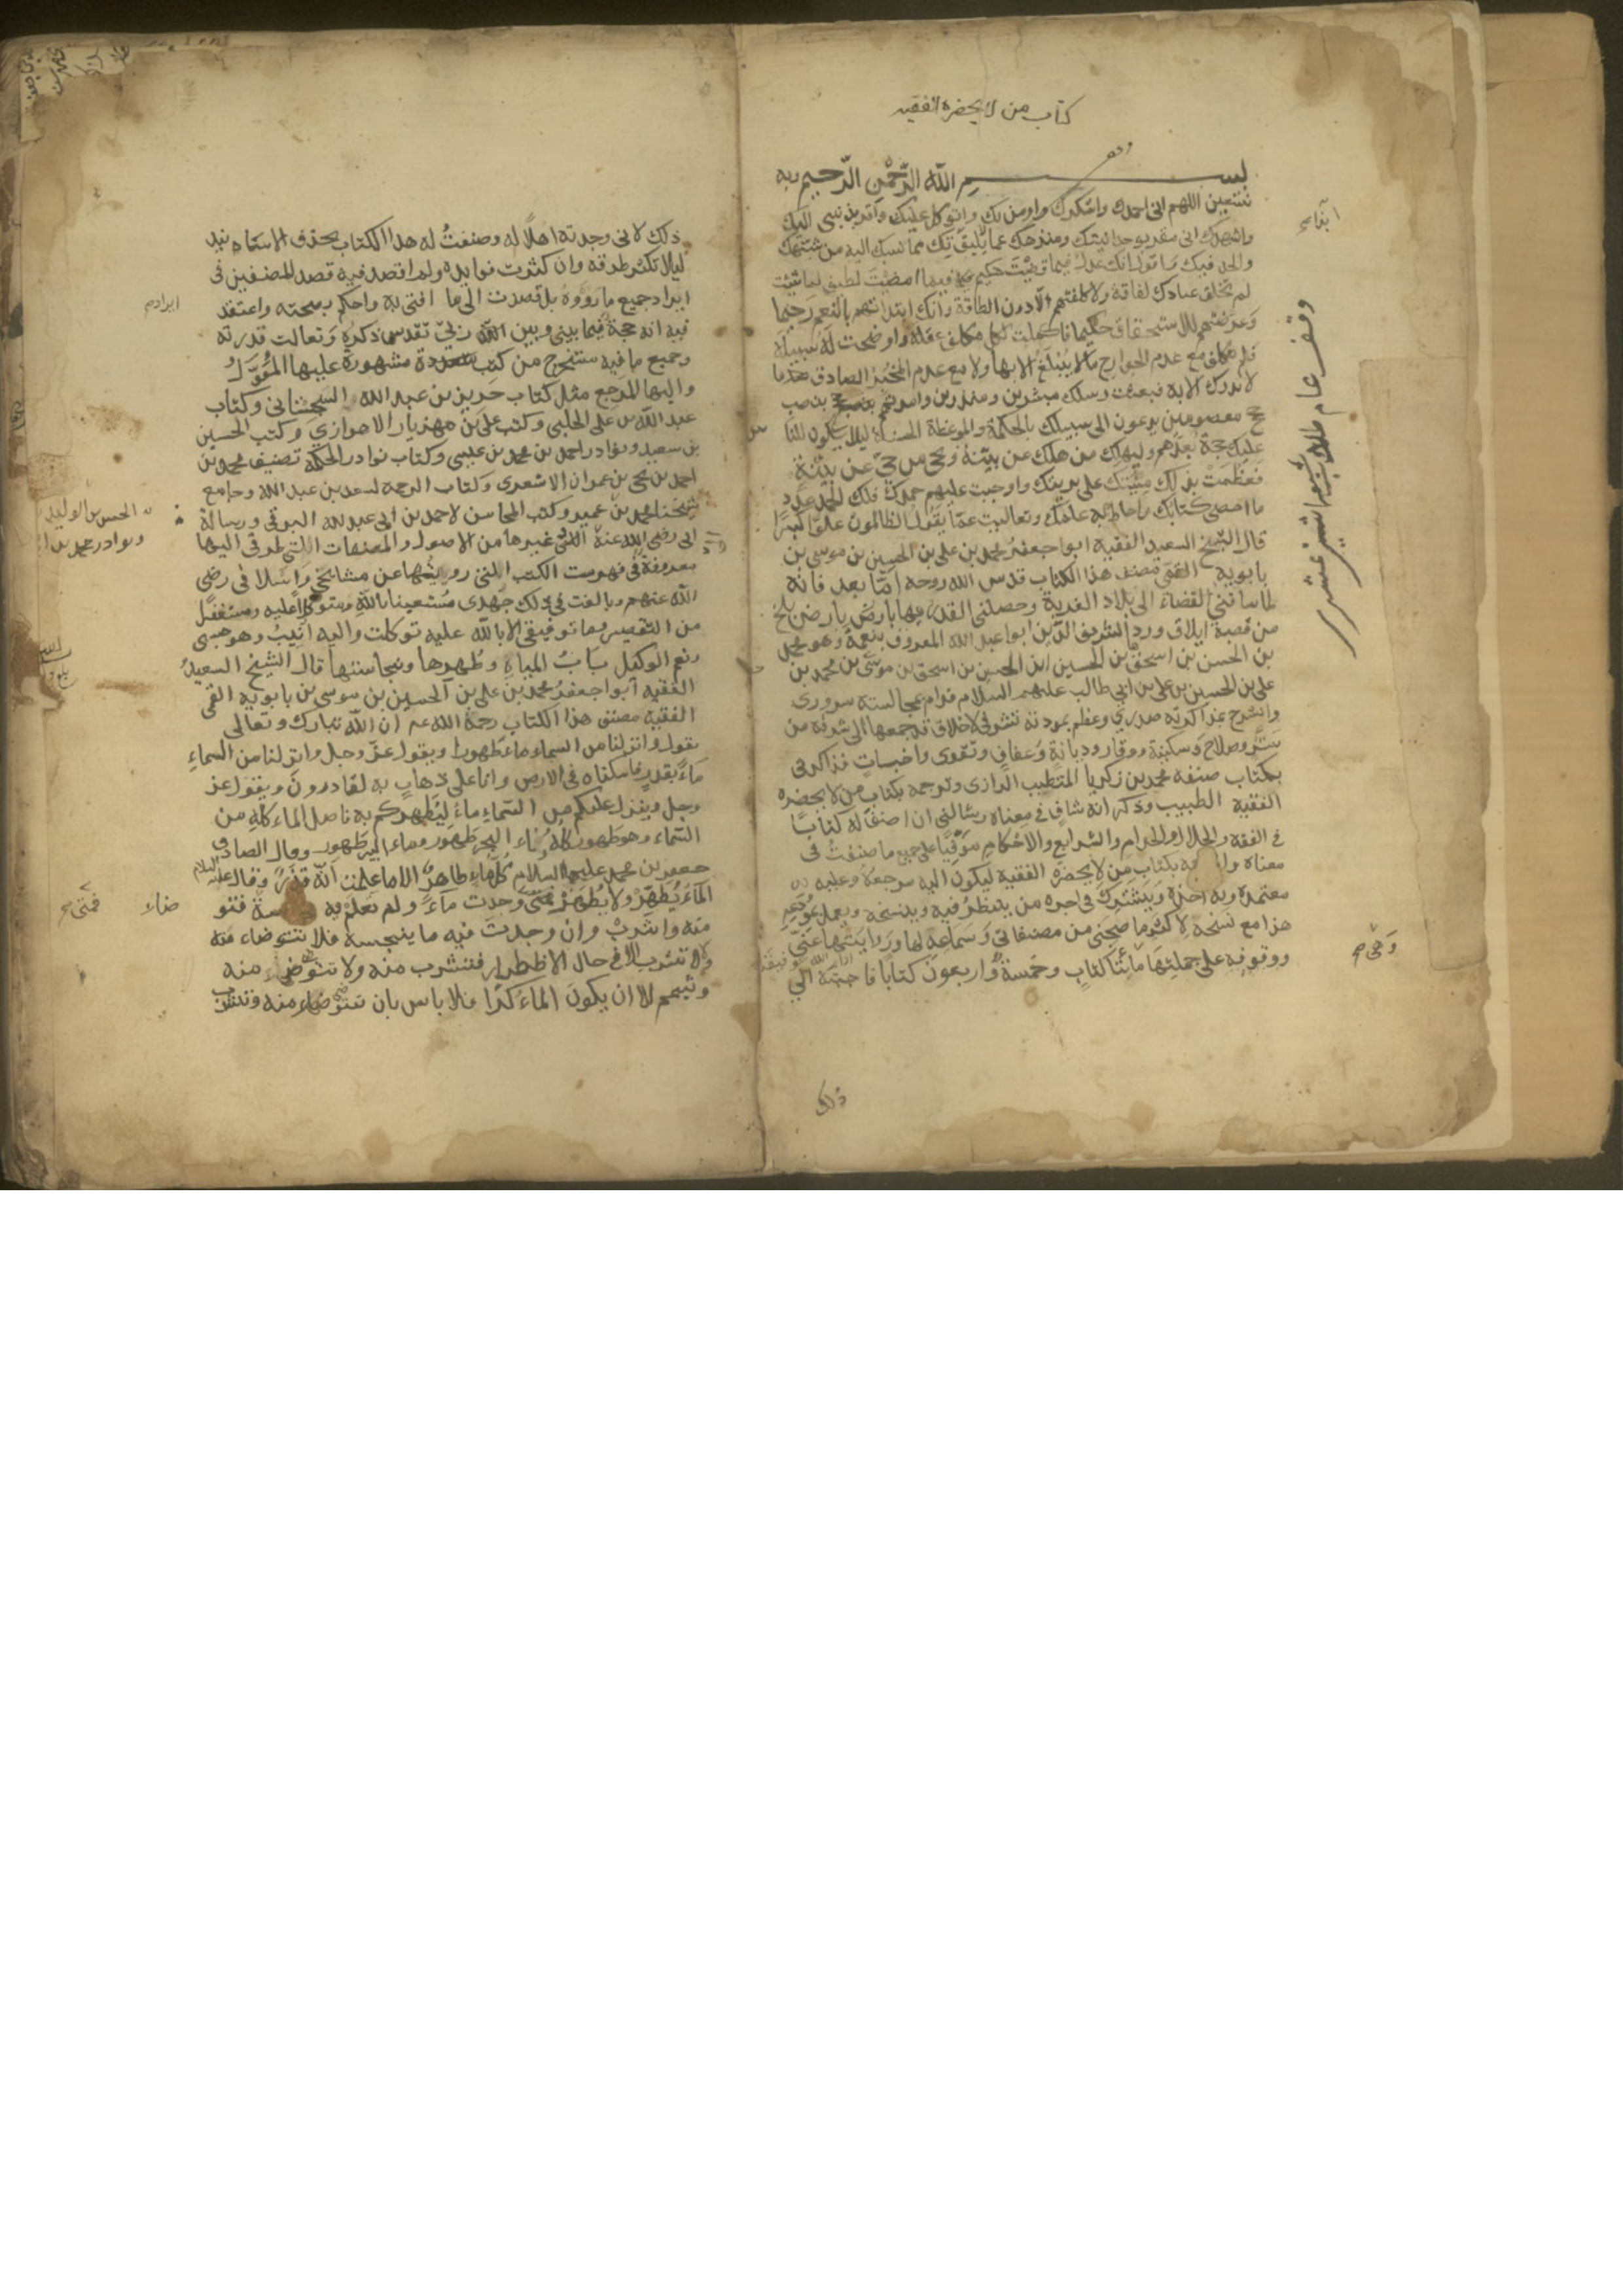 كتاب من لا يحضره الفقيه
بسم الله الرحمن الرحيم وبه
نستعين اللهم انى احمدك واشكرك واومن بك واتوكل عليك واقر بذنبى اليك
واشهدك انى مقر بوحدانيتك ومنزهك عما لا يليق بك مما نسبك اليه من شبهك
والحد فيك واقول انك عدل فيما قضيت حكيم فيما امضيت لطيف لما شئت
لم تخلق عبادك لفاقة ولا كلفتهم الا دون الطاقة وانك ابتداتهم بالنعم رحيما
وعرضتهم للاستحقاق حكيما فاكملت لكل مكلف عقله واوضحت له سبيله
فلم تكلف مع عدم الجوارح مالا يبلغ الا بها ولا مع عدم المخبر الصادق
لا يدرك الا به فبعثت رسلك مبشرين ومنذرين وامرتهم بنصب
حج معصومين يدعون الى سبيلك بالحكمة والموعظة الحسنة ليلا يكون للنا
عليك حجة بعدهم وليهلك من هلك عن بينة ويحى من حى عن بينة
فعظمت بذلك منتك على بريتك واوجبت عليهم حمدك فلك الحمد عدد
ما احصى كتابك واحاط به علمك وتعاليت عما يقول الظالمون علوا كبيرا
قال الشيخ السعيد الفقيه ابوا جعفر محمد بن على بن الحسين بن موسى بن
بابويه القمى مصنف هذا الكتاب قدس الله روحه اما بعد فانه
لما ساقنى القضاء الى بلاد الغربة وحصلنى القدر بها بارض بلخ
من قصبة ايلاق ورد الشريف الدين ابوا عبد الله المعروف بنعمة وهو محمد
بن الحسن بن اسحق بن الحسين ابن الحسين بن اسحق بن موسى بن محمد بن
على بن الحسين بن على بن ابى طالب عليهم السلام فدام بمجالسته سرورى
وانشرح بمذاكرته صدرى وعظم بمودته تشرفى لاخلاق قد جمعها الى شرفه من
ستر وصلاح وسكينة ووقار وديانة وعفاف وتقوى واخبات فذاكرنى
بكتاب صنفه محمد بن زكريا المتطبب الرازى وترجمه بكتاب من لا يحضره
الفقيه الطبيب وذكر انه شاف في معناه وسالنى ان اصنف له كتابا
في الفقه والحلال والحرام والشرايع والاحكام موفيا على جميع ما صنفت فى
معناه بكتاب من لا يحضره الفقيه ليكون اليه مرجعه وعليه
معتمده وبه اخذه ويشترك فى اجره من ينظر فيه وينسخه ويعمل بمودعه
هذا مع نسخه لاكثر ما صحبنى من مصنفاتى وسماعه لها وروايتها عنى
ووقوفه على جملتها مائتا كتاب وخمسة واربعون كتابا فاجبته الى
ذلك
وقف عام
ذلك لانى وجدته اهلا له وصنفت له هذا الكتاب بحذف الاسانيد
ليلا تكثر طرقه وان كثرت فوايده ولم اقصد فيه قصد المصنفين فى
ايراد جميع ما رووه بل قصدت الى ما افتى به واحكم بصحته واعتقد
فيه انه حجة فيما بينى وبين الله ربى تقدس ذكره وتعالت قدرته
وجميع ما فيه مستخرج من كتب متعددة مشهورة عليها المعول
واليها المرجع مثل كتاب حريز بن عبد الله السجستانى وكتاب
عبد الله بن على الحلبى وكتب على بن مهزيار الاهوازى وكتب الحسين
بن سعيد ونوادر احمد بن محمد بن عيسى وكتاب نوادر الحكمة تصنيف محمد بن
احمد بن يحى بن عمران الاشعرى وكتاب الرحمة لسعد بن عبد الله وجامع
شيخنا محمد بن عمير وكتب المحاسن لاحمد بن ابى عبد الله البرقى ورسالة
ابى رضى الله عنه الى وغيرها من الاصول والمصنفات اللتى طرقى اليها
معروفة فى فهرست الكتب اللتى رويتها عن مشايخى واسلافى رضى
الله عنهم وبالغت فى ذلك جهدى مستعينا بالله ومتوكلا عليه ومستغفرا
من التقصير وما توفيقى الا بالله عليه توكلت واليه انيب وهو حسبى
ونعم الوكيل باب المياه وطهرها ونجاستها قال الشيخ السعيد
الفقيه ابوا جعفر محمد بن على بن الحسين بن موسى بن بابويه القمى
الفقيه مصنف هذا الكتاب رحمة الله عليه ان الله تبارك وتعالى
يقول وانزلنا من السماء ماء طهورا ويقول عز وجل وانزلنا من السماء
ماء بقدر فاسكناه فى الارض وانا على ذهاب به لقادرون ويقول عز
وجل وينزل عليكم من السماء ماء ليطهركم به فاصل الماء كله من
السماء وهو طهور كله وماء البحر طهور وماء البير طهور وقال الصادق
جعفر بن محمد عليهما السلام كل ماء طاهر الا ما علمت انه قذر وقال عليه السلام
الماء يطهر ولا يطهر فمتى وجدت ماء ولم تعلم به فتو
منه واشرب وان وجدت فيه ما ينجسه فلا تتوضاء منه
ولا تشرب الا فى حال الاظطرار فتشرب منه ولا تتوضى منه
وتيمم الا ان يكون الماء كرا فلا باس بان تتوضاء منه وتشرب
ايرادم
الحسن بن الوليد
ونوادر محمد بن
ضاء
فمتى صح